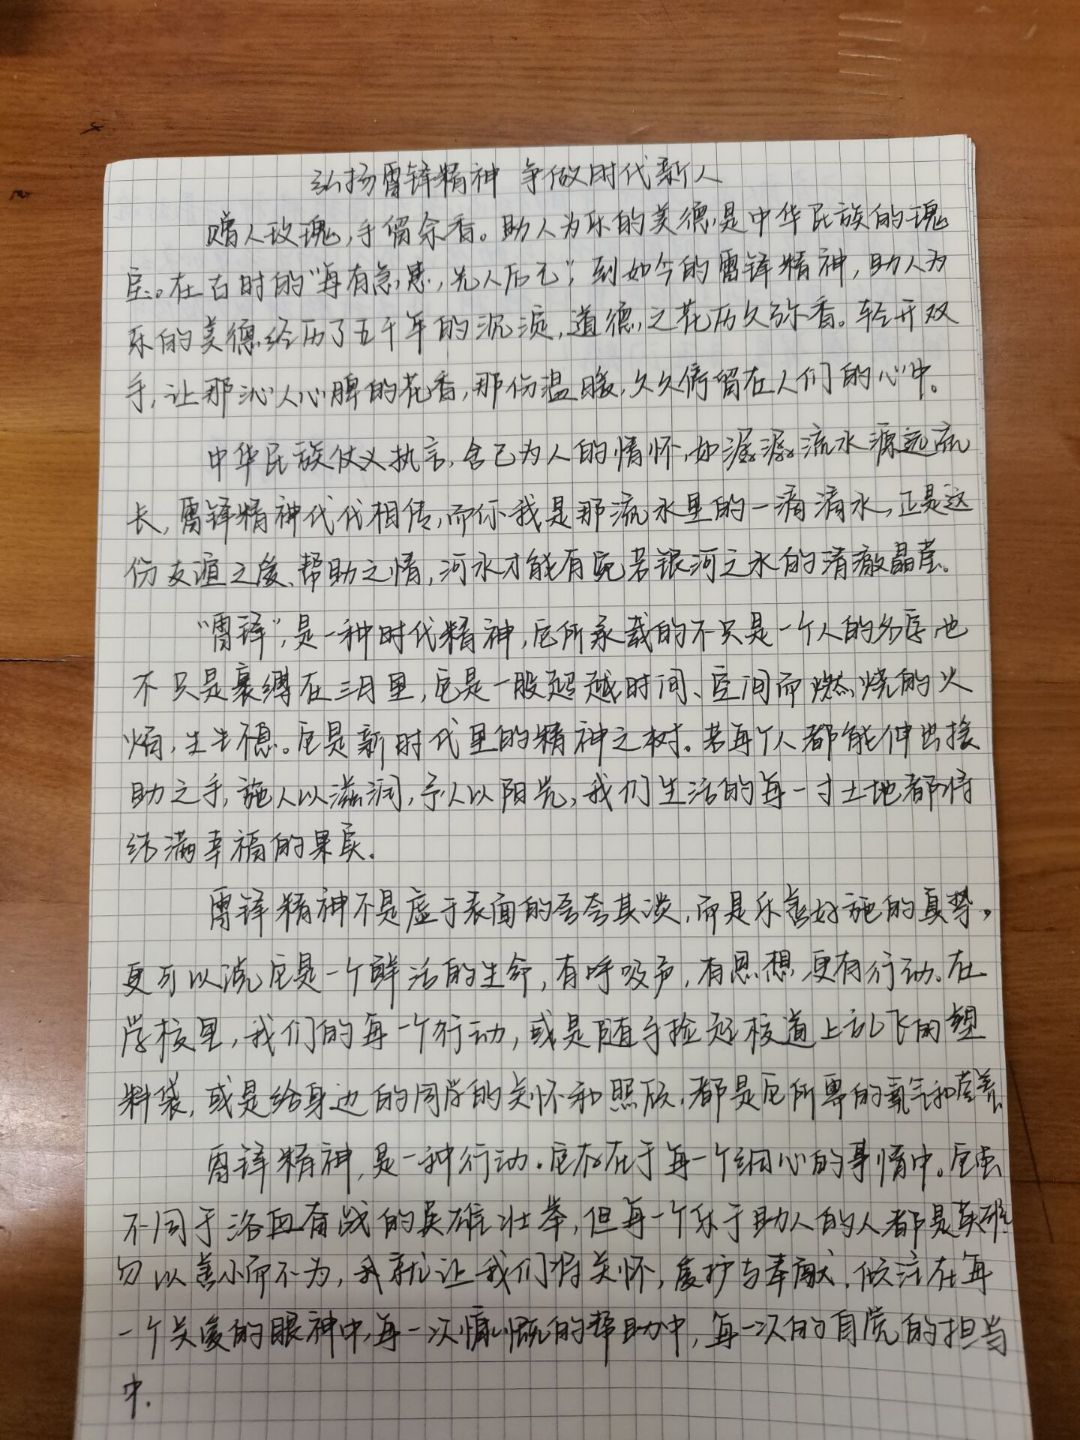 弘扬雷锋精神 争做时代新人
赠人玫瑰,手留余香。助人为乐的美德,是中华民族的瑰
宝。在古时的“每有急患,先人后己”,到如今的雷锋精神,助人为
乐的美德经历了五千年的沉淀,道德之花历久弥香。轻开双
手,让那沁人心脾的花香,那份温暖,久久停留在人们的心中。
中华民族仗义执言,舍己为人的情怀,如潺潺流水源远流
长,雷锋精神代代相传,而你我是那流水里的一滴滴水,正是这
份友谊之爱、帮助之情,河水才能有宛若银河之水的清澈晶莹。
“雷锋”,是一种时代精神,它所承载的不只是一个人的名字,也
不只是裹缚在三月里,它是一股超越时间、空间而燃烧的火
焰,生生不息。它是新时代里的精神之树。若每个人都能伸出援
助之手,施人以滋润,予人以阳光,我们生活的每一寸土地都将
结满幸福的果实.
雷锋精神不是虚于表面的夸夸其谈,而是乐善好施的真挚,
更可以说它是一个鲜活的生命,有呼吸声,有思想,更有行动.在
学校里,我们的每一个行动,或是随手捡起校道上乱飞的塑
料袋,或是给身边的同学的关怀和照顾,都是它所需的氧气和营养.
雷锋精神,是一种行动.它存在于每一个细心的事情中。它虽
不同于浴血奋战的英雄壮举,但每一个乐于助人的人都是英雄.
勿以善小而不为,我就让我们将关怀,爱护与奉献,倾注在每
一个关爱的眼神中,每一次慷慨的帮助中,每一次的自觉的担当
中.